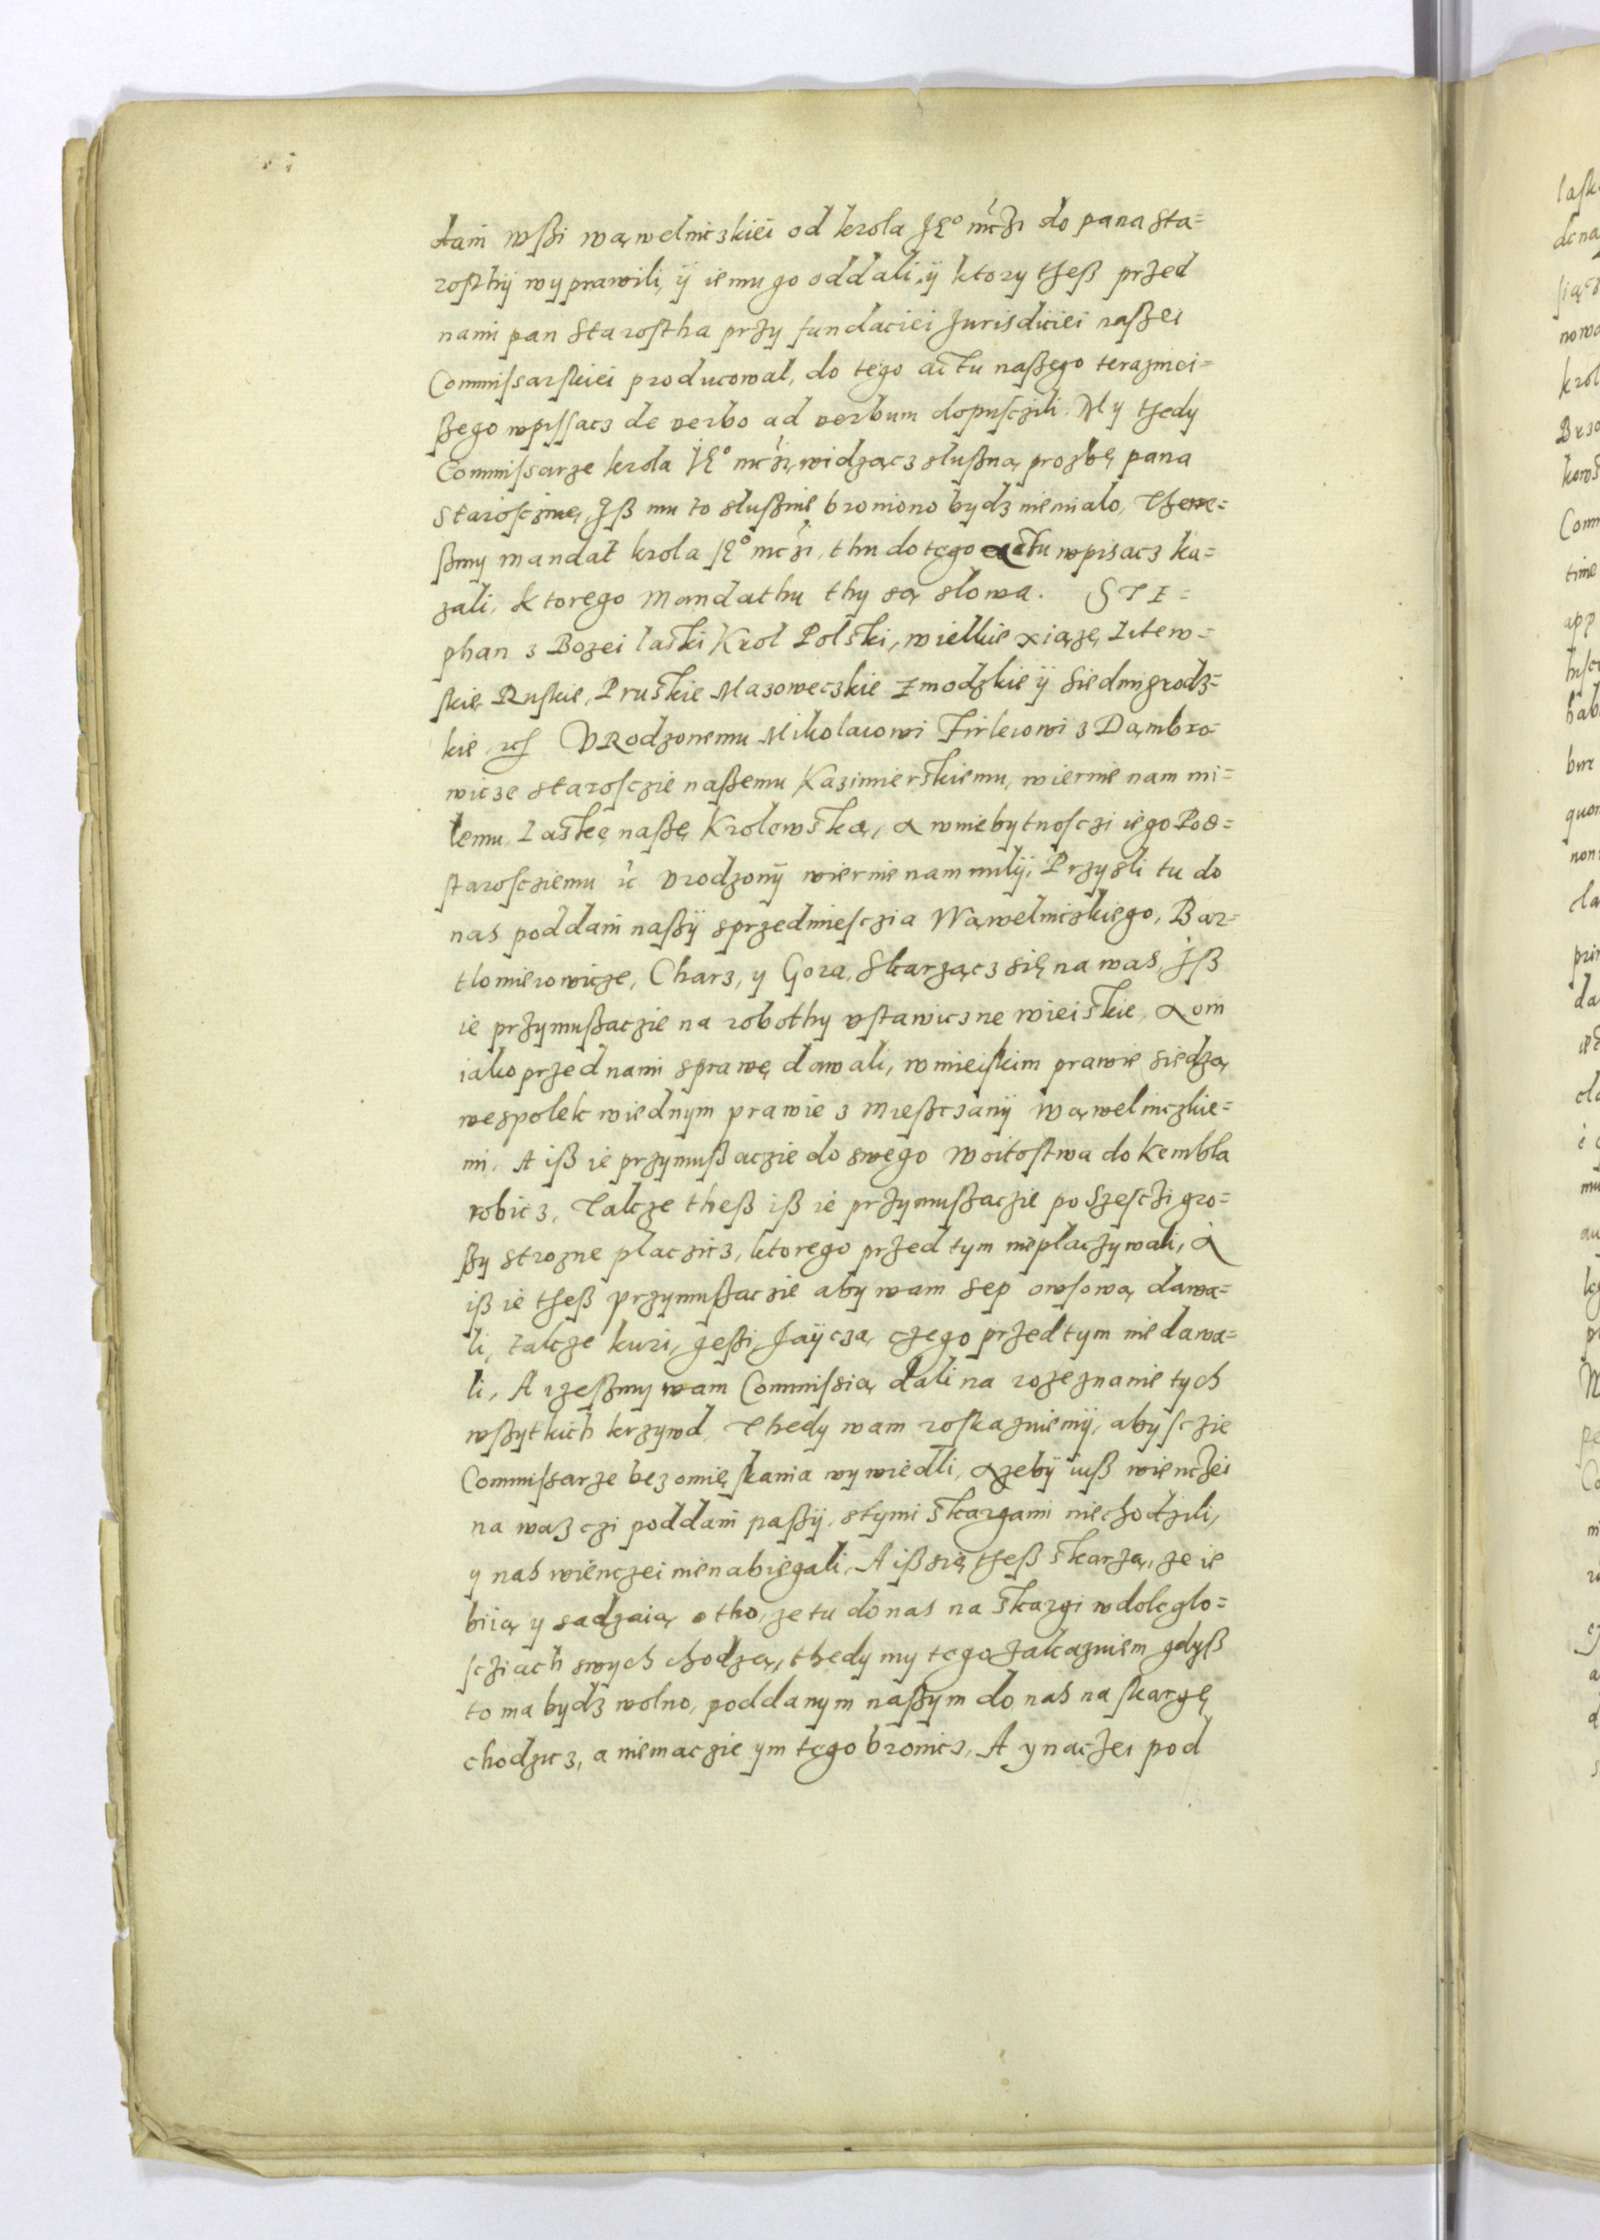 dani wßi wąwelniczkiei od krola JE° mczi do pana sta=
rosthÿ wyprawili, ÿ iemu go oddali, ÿ ktory theß przed
nami pan Starostha przy fundaciei Jurisdiciei naßei
Commissarskiei producowal, do tego actu naßego teraznei=
ßego wpissacz de verbo ad verbum dopusczili. My thedy
Commissarze krola JE° mczi, widzącz slußną prozbę pana
Starosczinę, Jß mu to slußnie broniono bydz niemialo,
ßmy mandat krola JE° mczi, thu do tego actu wpisacz ka=
zali, Ktorego Mandathu thy są slowa. STE=
phan z Bozei laski Krol Polski, wielkie xiązę Litew=
skie Ruskie, Pruskie Mazoweczkie Zmodzkie ÿ Siedmigrodz=
kie, VRodzonemu Mikolaiowi Firleiowi z Dąmbro=
wicze Starosczie naßemu Kazimierskiemu, wiernie nam mi=
lemu, Laskę naßę Krolowską, A wniebytnosczi iego Pod=
starosciemu Vrodzonÿ wiernie nam milÿ, Przysli tu do
nas poddani naßÿ sprzedmiesczia Wąwelniczkiego, Bar=
tlomieiowicze, Charz, y Gora, Skarzącz się na was, Jß
ie przymußaczie na robothy vstawiczne wieiskie, A oni
iako przed nami sprawę dawali, w mieiskim prawie siedzą
wespolek wiednym prawie z Mießczanÿ Wąwelniczkie=
mi, A iß ie przymußaczie do swego Woitostwa do Kembla
robicz, Takze theß iß ie przymußaczie po szesczi gro=
ßy strozne placzicz, ktorego przed tym nieplaczywali, A
iß ie theß przymußaczie aby wam sep owsową dawa=
li, takze kuri, geßi, Jaÿcza, czego przed tym niedawa=
li, A izeßmy wam Commissią dali na rozeznanie tych
wßytkich krzywd, Thedy wam roskazuiemÿ, abysczie
Commissarze bez omięskania wywiedli, A zebÿ iuß wienczei
na waz czi poddani naßÿ, stymi skargami niechodzili,
y nas wienczei nienabiegali, A iß się theß skarzą, ze ie
biią y sadzaią o tho, ze tu do nas na skargi wdolęglo=
scziach swych chodzą, thedy my tego zakazuiem gdyß
to ma bydz wolno, poddanym naßym do nas na skargę
chodzicz, a niemaczie ym tego bronicz, A ynaczei pod